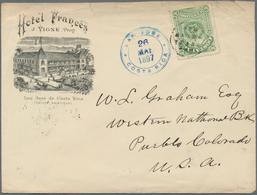 Hotel Francés
J. VIGNE, Prop.
San José de Costa Rica
SAN JOSE
26
MAI
1897
COSTA RICA
W. L. Graham Esq
Western National Bk
Pueblo Colorado
U.S.A.